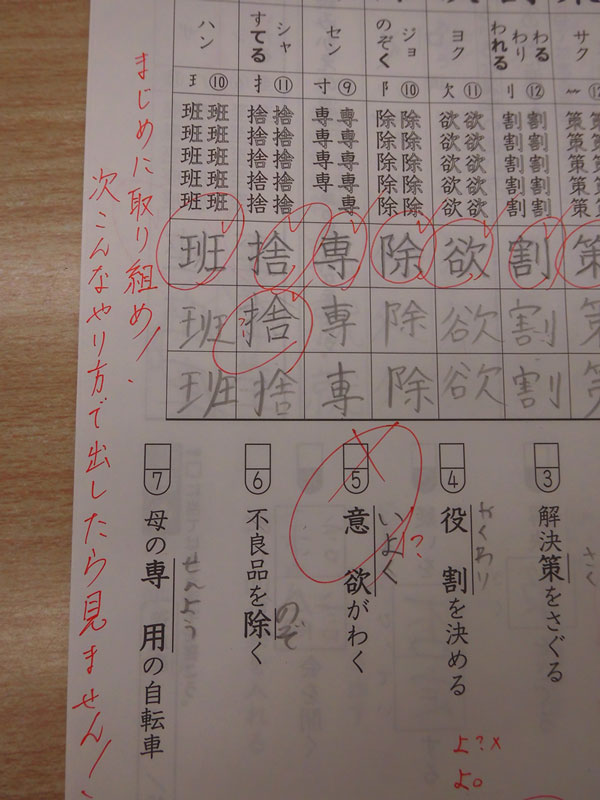 サク
策策
策策
策策
策策
策策
策
わる
わり
われる
刂 ⑫
割割
割割
割割
割割
割割
割
割
割
ヨク
欠 ⑪
欲欲
欲欲
欲欲
欲欲
欲欲
欲
欲
欲
ジョ
のぞく
阝 ⑩
除除
除除
除除
除除
除除
除
除
除
セン
寸 ⑨
専専
専専
専専
専専
専
専
専
専
シャ
すてる
扌 ⑪
捨捨
捨捨
捨捨
捨捨
捨捨
捨
捨
捨
ハン
⑩
班班
班班
班班
班班
班班
班
班
班
3 解決策をさぐる
さく
4 役割を決める
やくわり
よ?×
よ○
5 意欲がわく
いよく
!?
6 不良品を除く
のぞ
7 母の専用の自転車
せんよう
まじめに取り組め!
次こんなやり方で出したら見ません!